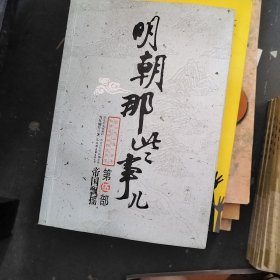 明朝那些事儿
第伍部
帝国飘摇